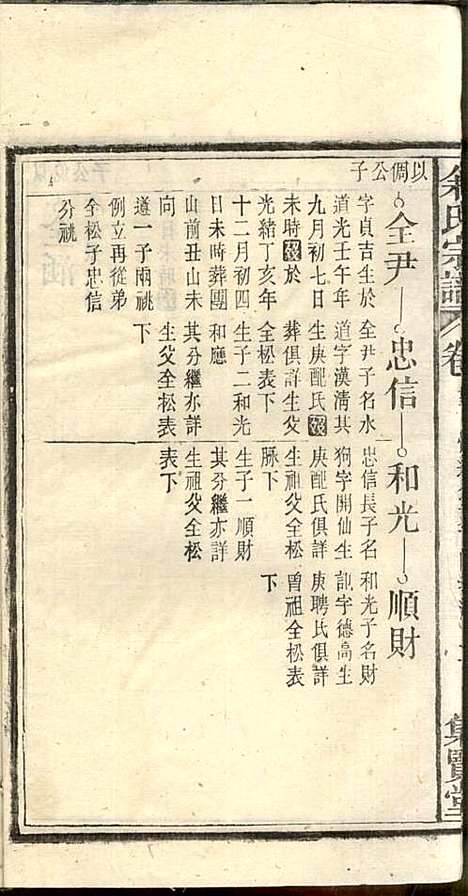 以倜公子
全尹
忠信
和光
順財
字貞吉生於
道光壬午年
九月初七日
未時歿於
光緒丁亥年
十二月初四
日未時葬團
山前丑山未
向
遵一子兩祧
例立再從弟
全松子忠信
分祧
全尹子名水
道字漢淸其
生庚配氏歿
葬俱詳生父
全松表下
生子二和光
和應
其分繼亦詳
生父全松表
下
忠信長子名
狗字開仙生
庚配氏俱詳
生祖父全松
脉下
生子一順財
其分繼亦詳
生祖父全松
表下
和光子名財
訓字德高生
庚聘氏俱詳
曾祖全松表
下
氏宗譜
卷
集賢堂